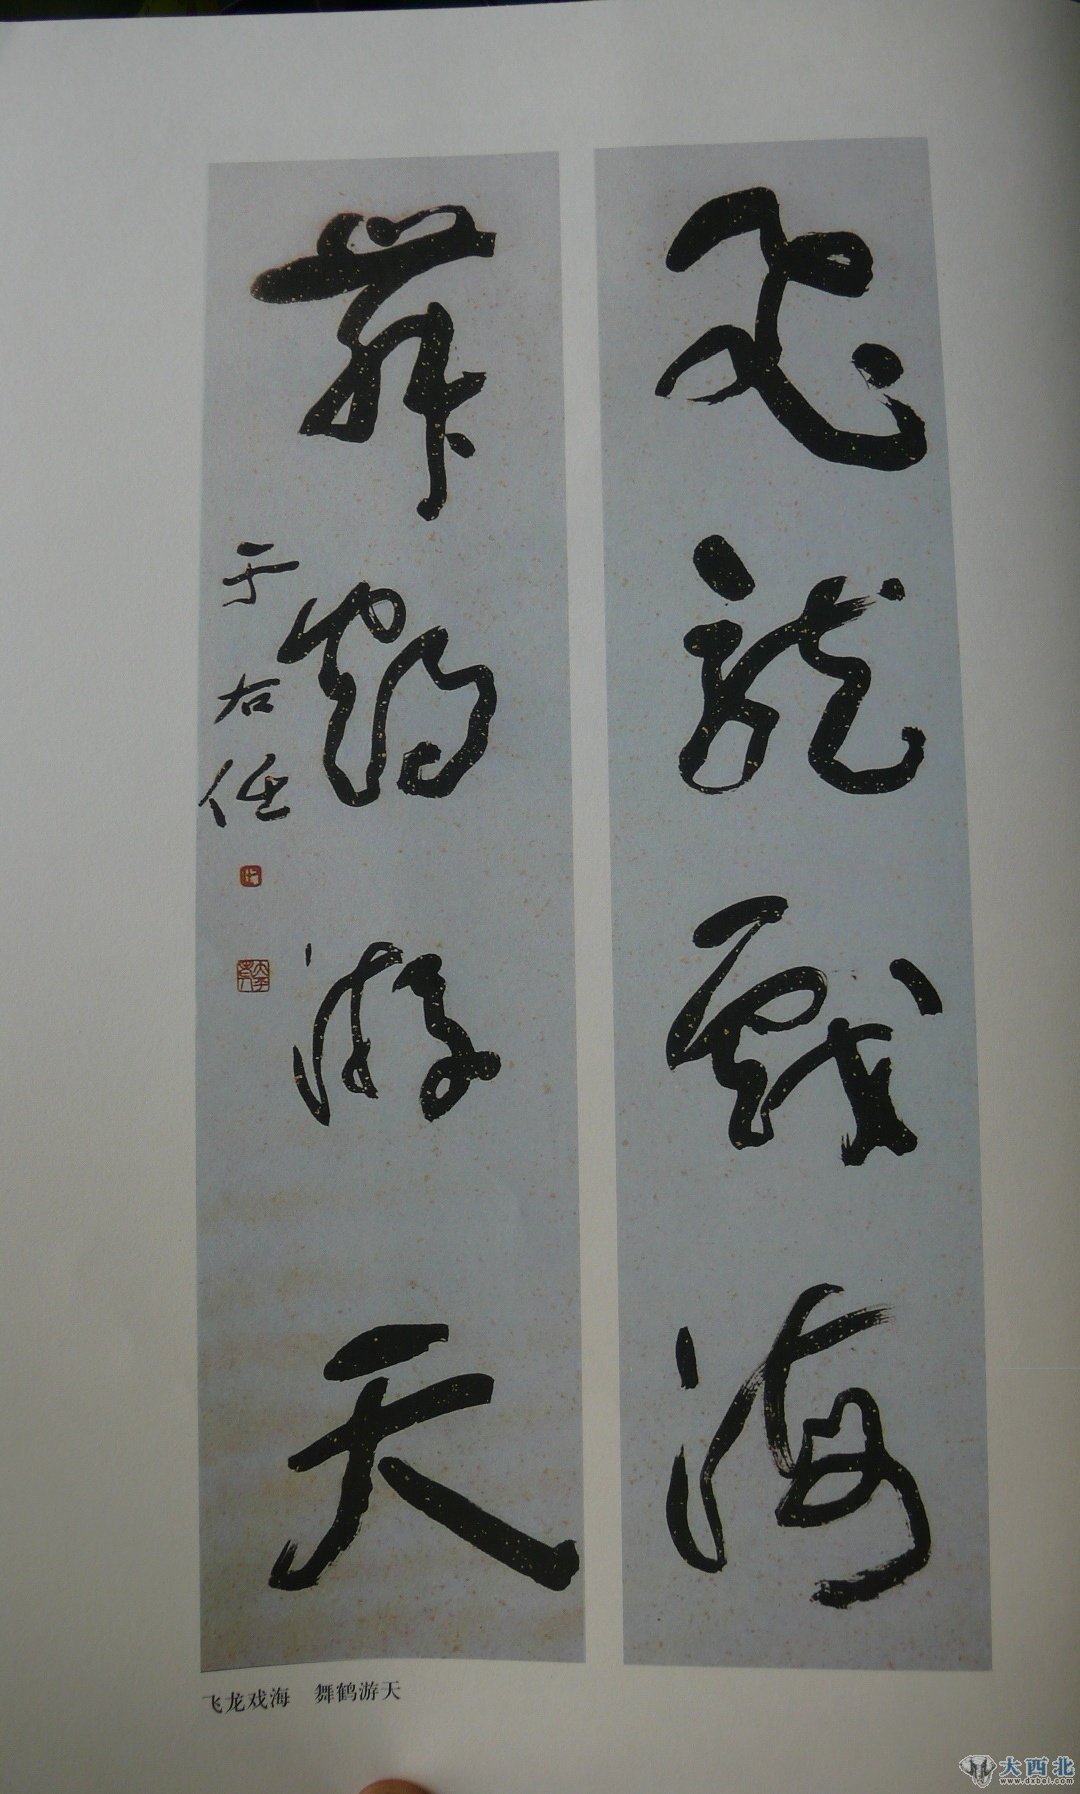 飛龍戲海
舞鶴游天
于右任
飞龙戏海　舞鹤游天
大西北
www.dxbei.com